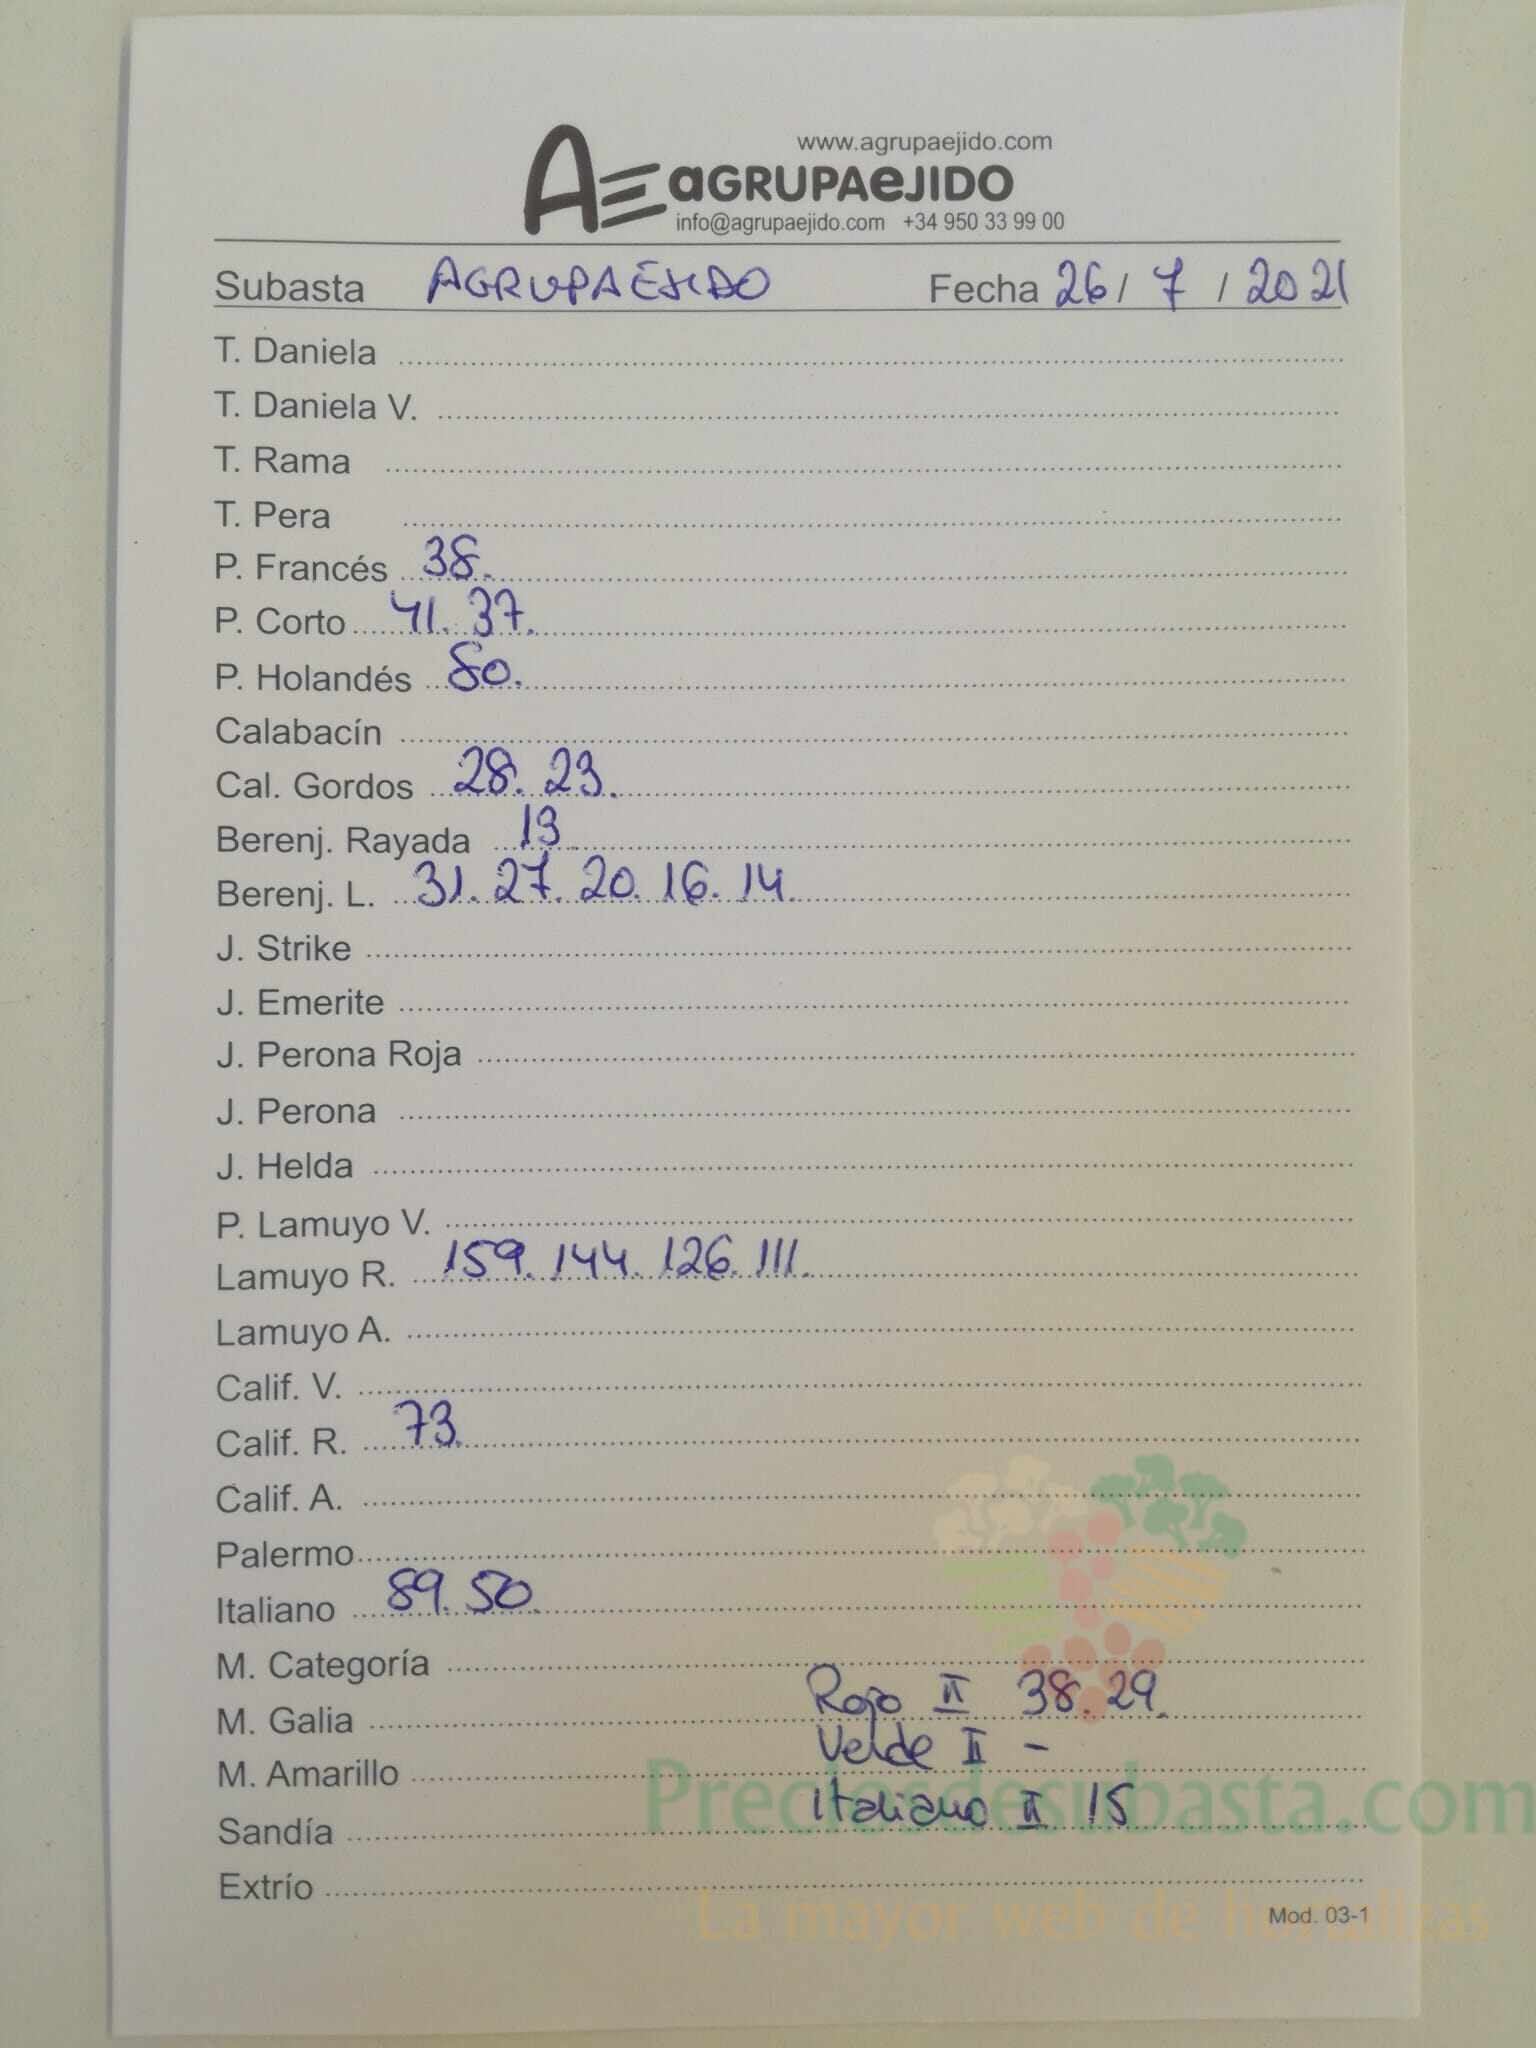 www.agrupaejido.com
AE aGRUPAeJIDO
info@agrupaejido.com +34 950 33 99 00
Subasta AGRUPAEJIDO Fecha 26 / 7 / 2021
T. Daniela
T. Daniela V.
T. Rama
T. Pera
P. Francés 38.
P. Corto 41. 37.
P. Holandés 80.
Calabacín
Cal. Gordos 28. 23.
Berenj. Rayada 13
Berenj. L. 31. 27. 20. 16. 14.
J. Strike
J. Emerite
J. Perona Roja
J. Perona
J. Helda
P. Lamuyo V.
Lamuyo R. 159. 144. 126. 111.
Lamuyo A.
Calif. V.
Calif. R. 73.
Calif. A.
Palermo
Italiano 89. 50.
M. Categoría
M. Galia Rojo II 38. 29.
M. Amarillo Verde II -
Preciosdesubasta.com
Sandía Italiano II 15
Extrío
La mayor web de hortalizas
Mod. 03-1